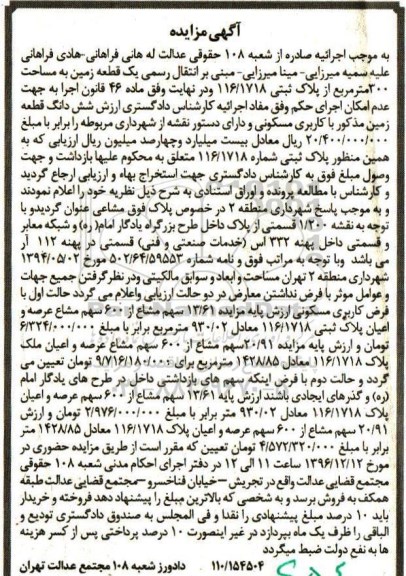 آگهی مزایده
به موجب اجرائیه صادره از شعبه ۱۰۸ حقوقی عدالت له هانی فراهانی-هادی فراهانی
علیه سمیه میرزایی- مینا میرزایی- مبنی بر انتقال رسمی یک قطعه زمین به مساحت
۳۰۰مترمربع از پلاک ثبتی ۱۱۶/۱۷۱۸ ودر نهایت وفق ماده ۴۶ قانون اجرا به جهت
عدم امکان اجرای حکم وفق مفاد اجرائیه کارشناس دادگستری ارزش شش دانگ قطعه
زمین مذکور با کاربری مسکونی و دارای دستور نقشه از شهرداری مربوطه را برابر با مبلغ
۲۰/۴۰۰/۰۰۰/۰۰۰ ریال معادل بیست میلیارد وچهارصد میلیون ریال ارزیابی که به
همین منظور پلاک ثبتی شماره ۱۱۶/۱۷۱۸ متعلق به محکوم علیها بازداشت و جهت
وصول مبلغ فوق به کارشناس دادگستری جهت استخراج بهاء و ارزیابی ارجاع گردید
و کارشناس با مطالعه پرونده و اوراق استنادی به شرح ذیل نظریه خود را اعلام نمودند
و به موجب پاسخ شهرداری منطقه ۲ در خصوص پلاک فوق مشاعی عنوان گردیدو با
توجه به نقشه ۱/۲۰۰۰ قسمتی از پلاک داخل طرح بزرگراه یادگار امام (ره) و شبکه معابر
و قسمتی داخل پهنه ۳۳۲ اس (خدمات صنعتی و فنی) قسمتی در پهنه ۱۱۲ آر
می باشد وبا توجه به مراتب فوق و نامه شماره ۵۰۲/۶۴/۵۹۵۵۳ مورخ ۱۳۹۴/۰۵/۰۲
شهرداری منطقه ۲ تهران مساحت و ابعاد و سوابق مالکیتی ودر نظر گرفتن جمیع جهات
و عوامل موثر با فرض نداشتن معارض در دو حالت ارزیابی واعلام می گردد حالت اول با
فرض کاربری مسکونی ارزش پایه مزایده ۱۳/۶۱ سهم مشاع از ۶۰۰ سهم مشاع عرصه و
اعیان پلاک ثبتی ۱۱۶/۱۷۱۸ معادل ۹۳۰/۰۲ مترمربع برابر با مبلغ ۶/۳۲۴/۰۰۰/۰۰۰
تومان و ارزش پایه مزایده ۲۰/۹۱سهم مشاع از ۶۰۰ سهم مشاع عرصه و اعیان ملک
پلاک ۱۱۶/۱۷۱۸ معادل ۱۴۲۸/۸۵ مترمربع برابر با ۹/۷۱۶/۱۸۰/۰۰۰ تومان تعیین می
گردد و حالت دوم با فرض اینکه سهم های بازداشتی داخل در طرح های یادگار امام
(ره) و گذرهای ایجادی باشند ارزش پایه ۱۳/۶۱ سهم مشاع از ۶۰۰ سهم عرصه و اعیان
پلاک ۱۱۶/۱۷۱۸ معادل ۹۳۰/۰۲ متر برابر با مبلغ ۲/۹۷۶/۰۰۰/۰۰۰ تومان و ارزش
۲۰/۹۱ سهم مشاع از ۶۰۰ سهم عرصه و اعیان پلاک ۱۱۶/۱۷۱۸ معادل ۱۴۲۸/۸۵ متر
برابر با مبلغ ۴/۵۷۲/۳۲۰/۰۰۰ تومان تعیین که مقرر است از طریق مزایده حضوری در
مورخ ۱۳۹۶/۱۲/۱۲ ساعت ۱۱ الی ۱۲ در دفتر اجرای احکام مدنی شعبه ۱۰۸ حقوقی
مجتمع قضایی عدالت واقع در تجریش –خیابان فناخسرو –مجتمع قضایی عدالت طبقه
همکف به فروش برسد و به شخصی که بالاترین مبلغ را پیشنهاد دهد فروخته و خریدار
باید ۱۰ درصد مبلغ پیشنهادی را نقدا و فی المجلس به صندوق دادگستری تودیع و
الباقی را ظرف یک ماه بپردازد در غیر اینصورت ۱۰ درصد پرداختی پس از کسر هزینه
ها به نفع دولت ضبط میگردد
۱۱۰/۱۵۴۵۰۴ دادورز شعبه ۱۰۸ مجتمع عدالت تهران